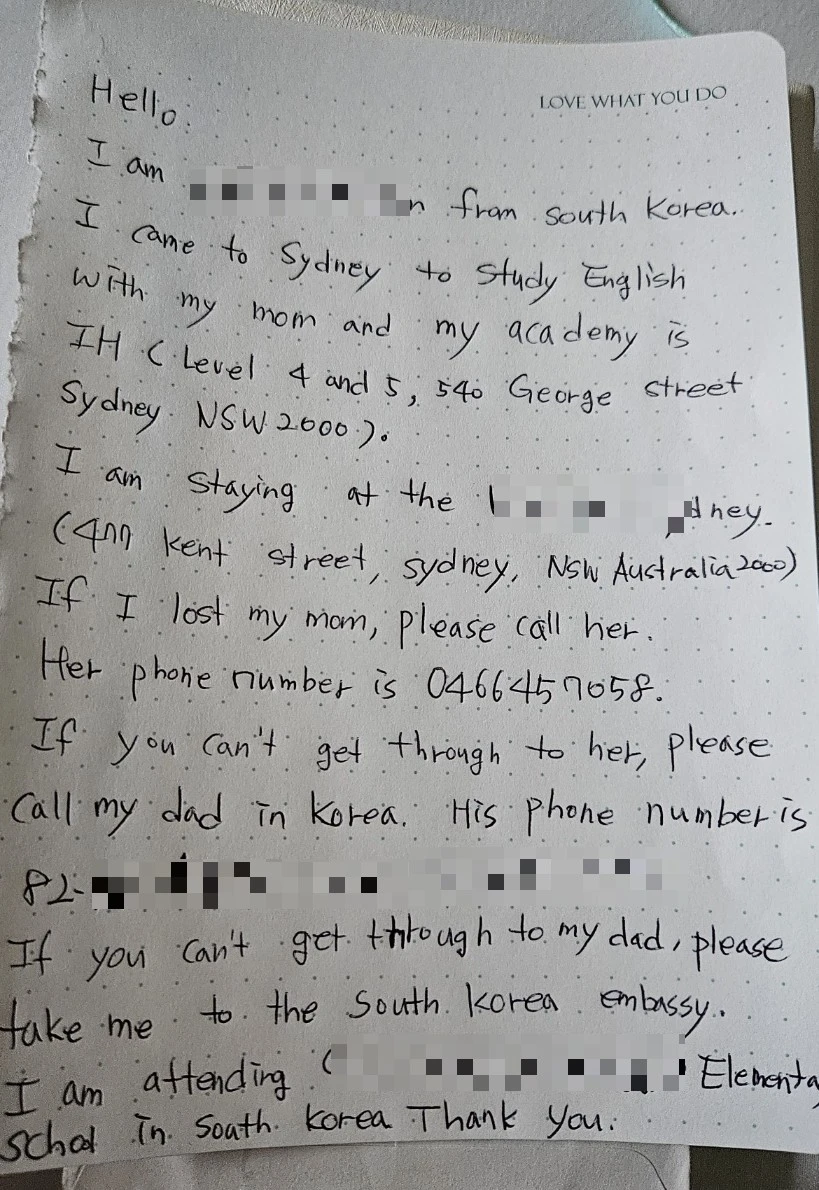 LOVE WHAT YOU DO
Hello.
I am from south Korea.
I came to Sydney to study English
with my mom and my academy is
IH (Level 4 and 5, 540 George street
Sydney NSW 2000).
I am staying at the
(477 kent street, sydney, NSW Australia 2000)
If I lost my mom, please call her.
Her phone number is 0466457058.
If you can't get through to her, please
call my dad in korea. His phone number is
82-
If you can't get through to my dad, please
take me to the south korea embassy.
I am attending ( Elementa
school in south korea Thank you.